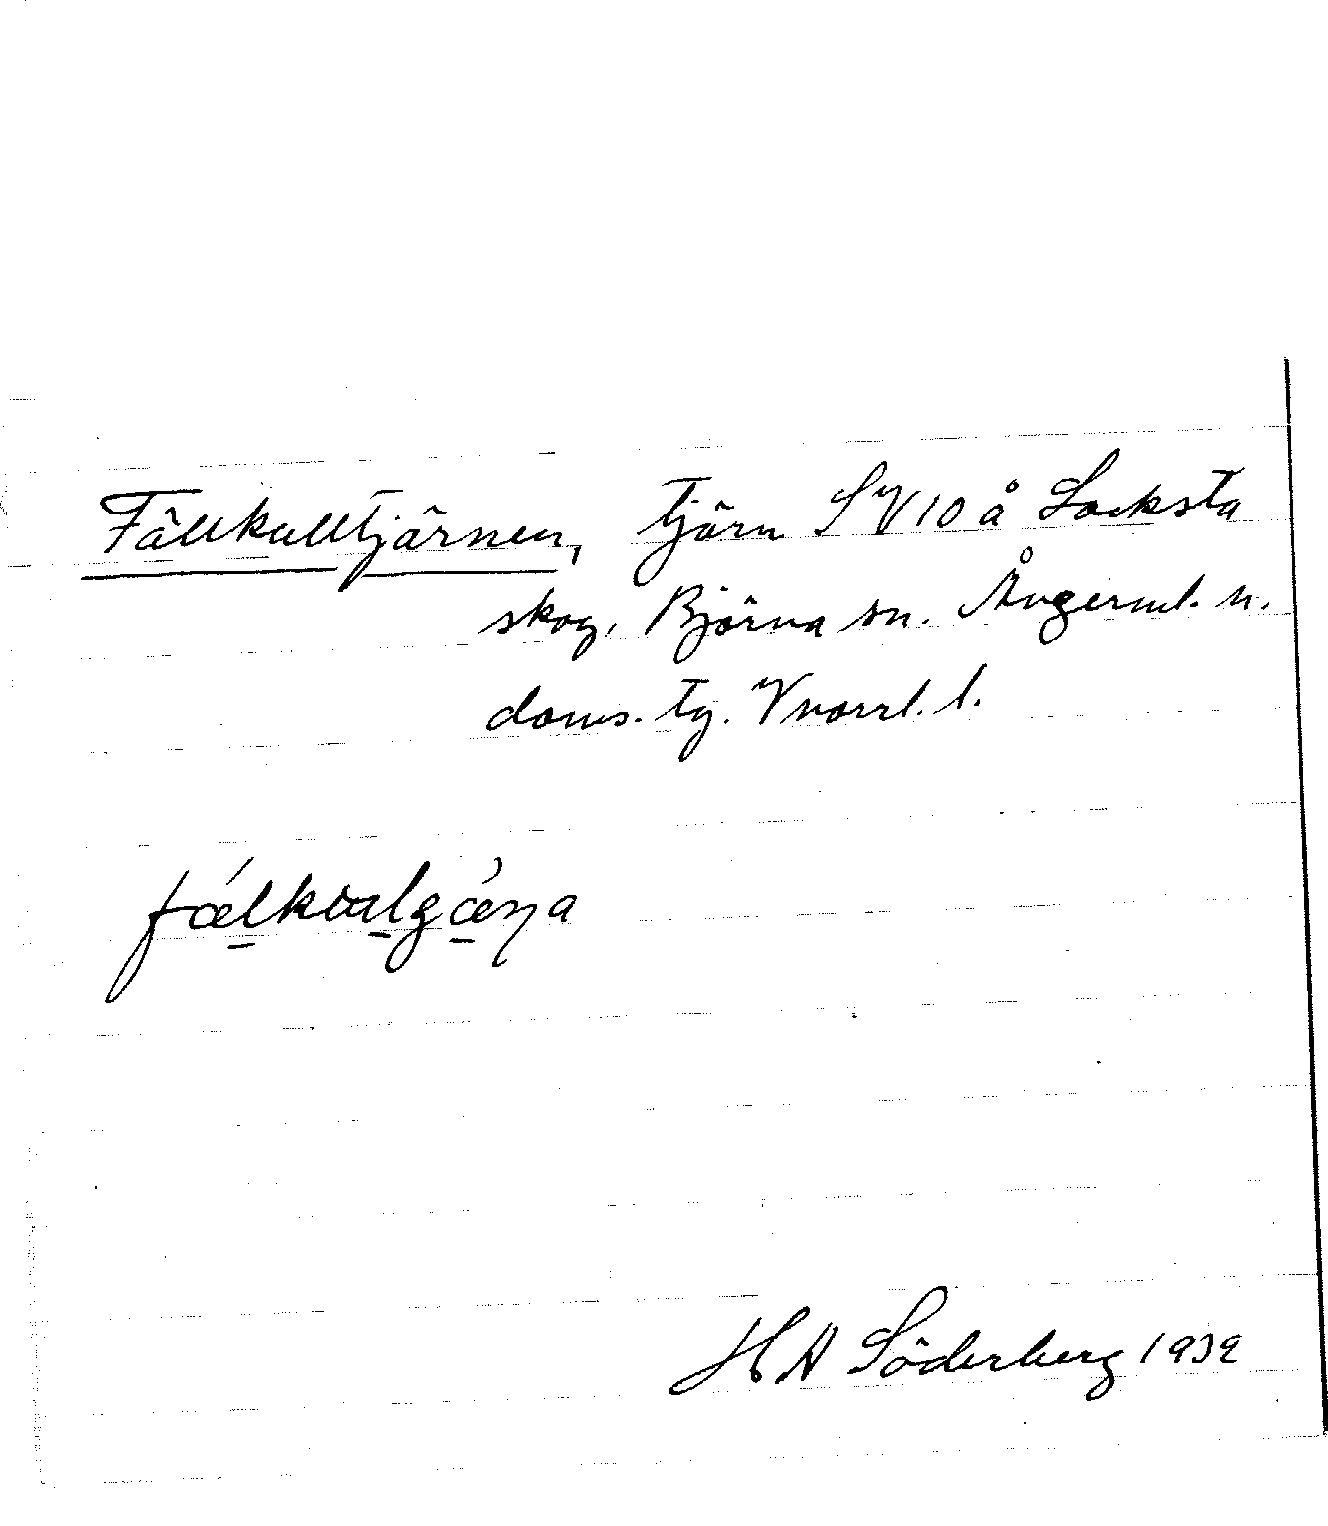 Fällkulltjärnen, tjärn S.V 10 å Locksta
skog, Björna sn. Ångerml. n.
doms. tg. Vnorrl. l.
H A Söderberg 1939